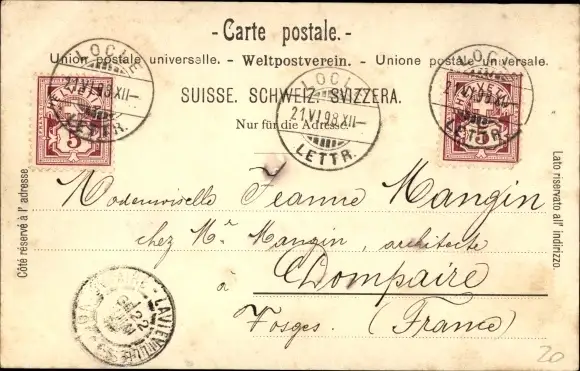 - Carte postale. -
Union postale universelle. - Weltpostverein. - Unione postale universale.
SUISSE. SCHWEIZ. SVIZZERA.
Nur für die Adresse.
LOCLE
21.VI.98.XII-
LETTR.
LOCLE
21.VI.98.XII-
LETTR.
LOCLE
21.VI.98.XII-
LETTR.
HELVETIA
5
5
Côté réservé à l'adresse
Lato riservato all'indirizzo.
Mademoiselle Jeanne Mangin
chez Mr Mangin, architecte
à Dompaire
Vosges. (France)
22
20